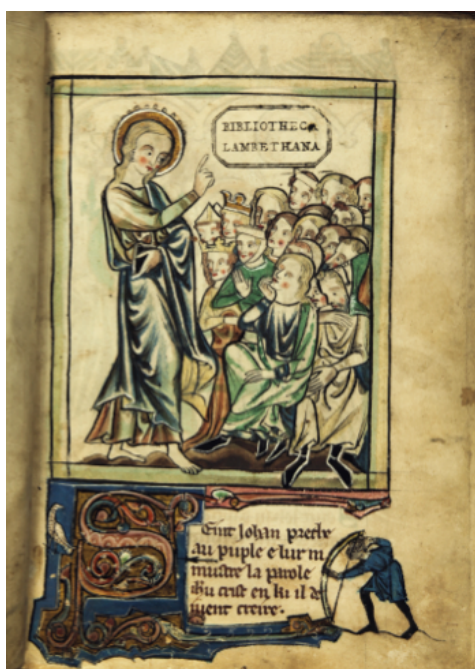 BIBLIOTHECA
LAMBETHANA
Seint Johan preche
au puple e lur m
mustre la parole
ihu crist en ki il d
ivent creire.